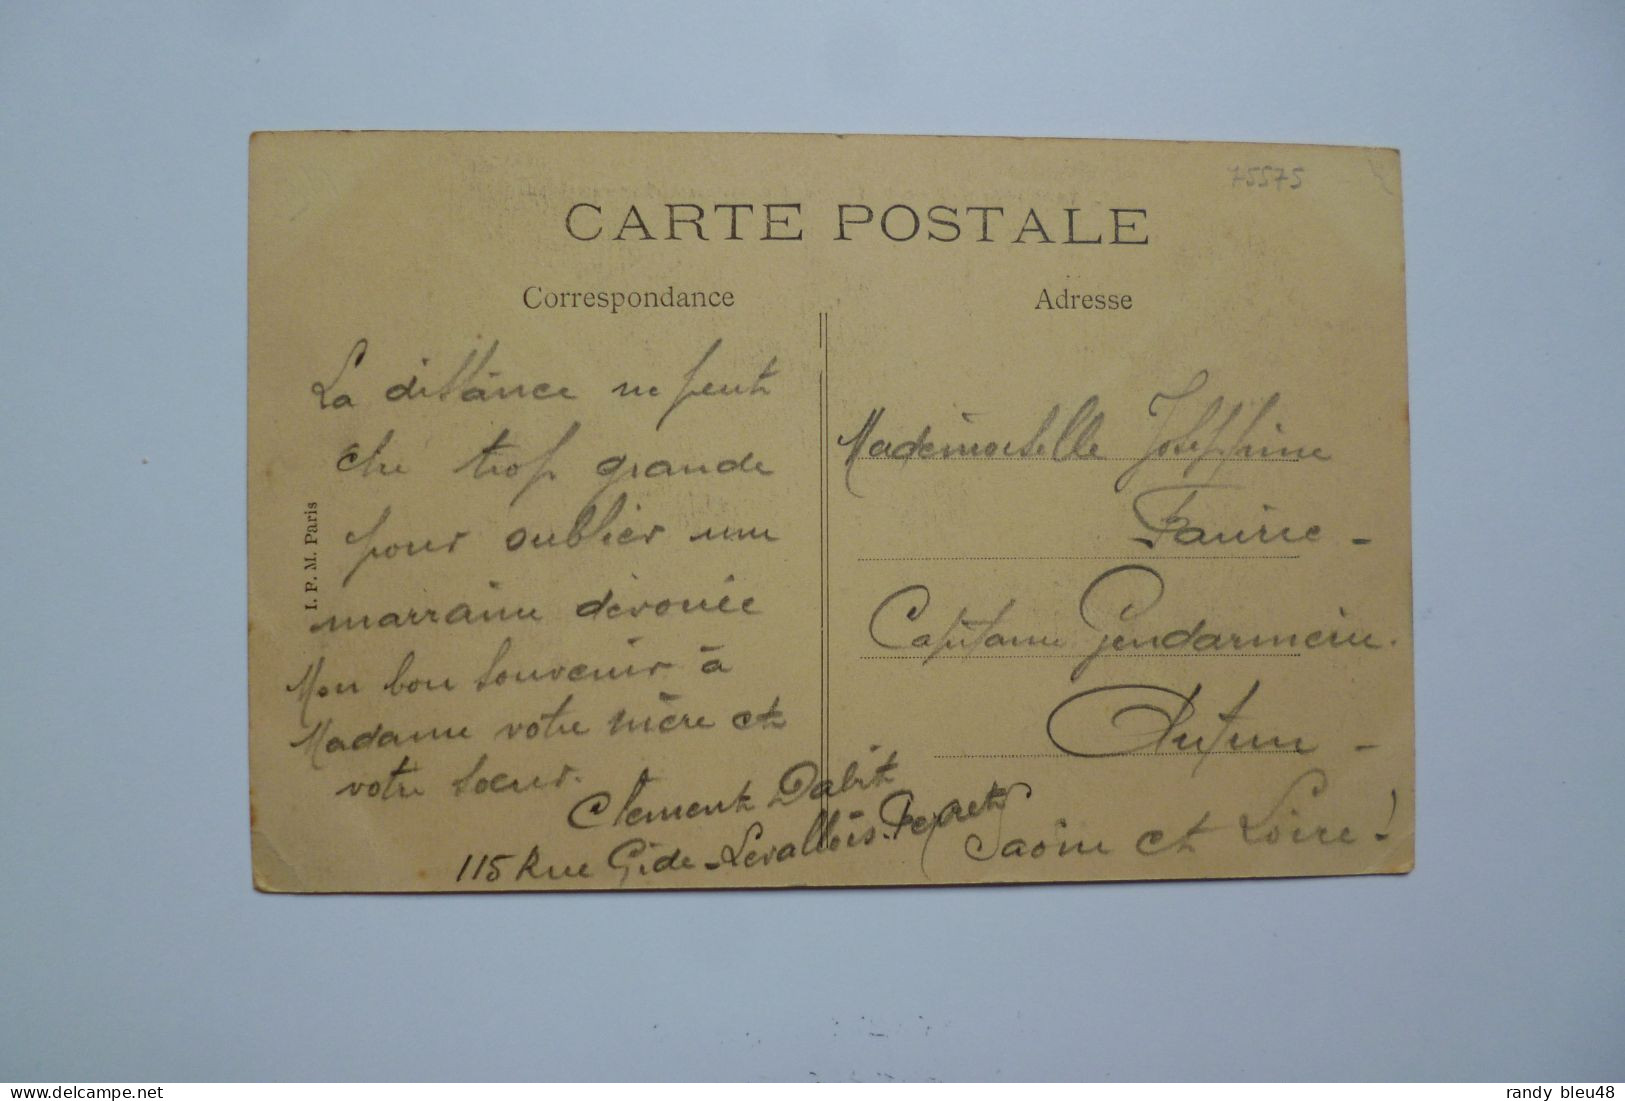 75575
CARTE POSTALE
Correspondance
Adresse
La distance ne peut
être trop grande
pour oublier une
marraine dévouée
Mon bon souvenir à
Madame votre mère et
votre sœur.
Clement Dabit
115 Rue Gide - Levallois-Perret
I. P. M. Paris
Mademoiselle Josephine
Faurie -
Capitaine Gendarmerie.
Autun -
Saône et Loire!
randy bleu48